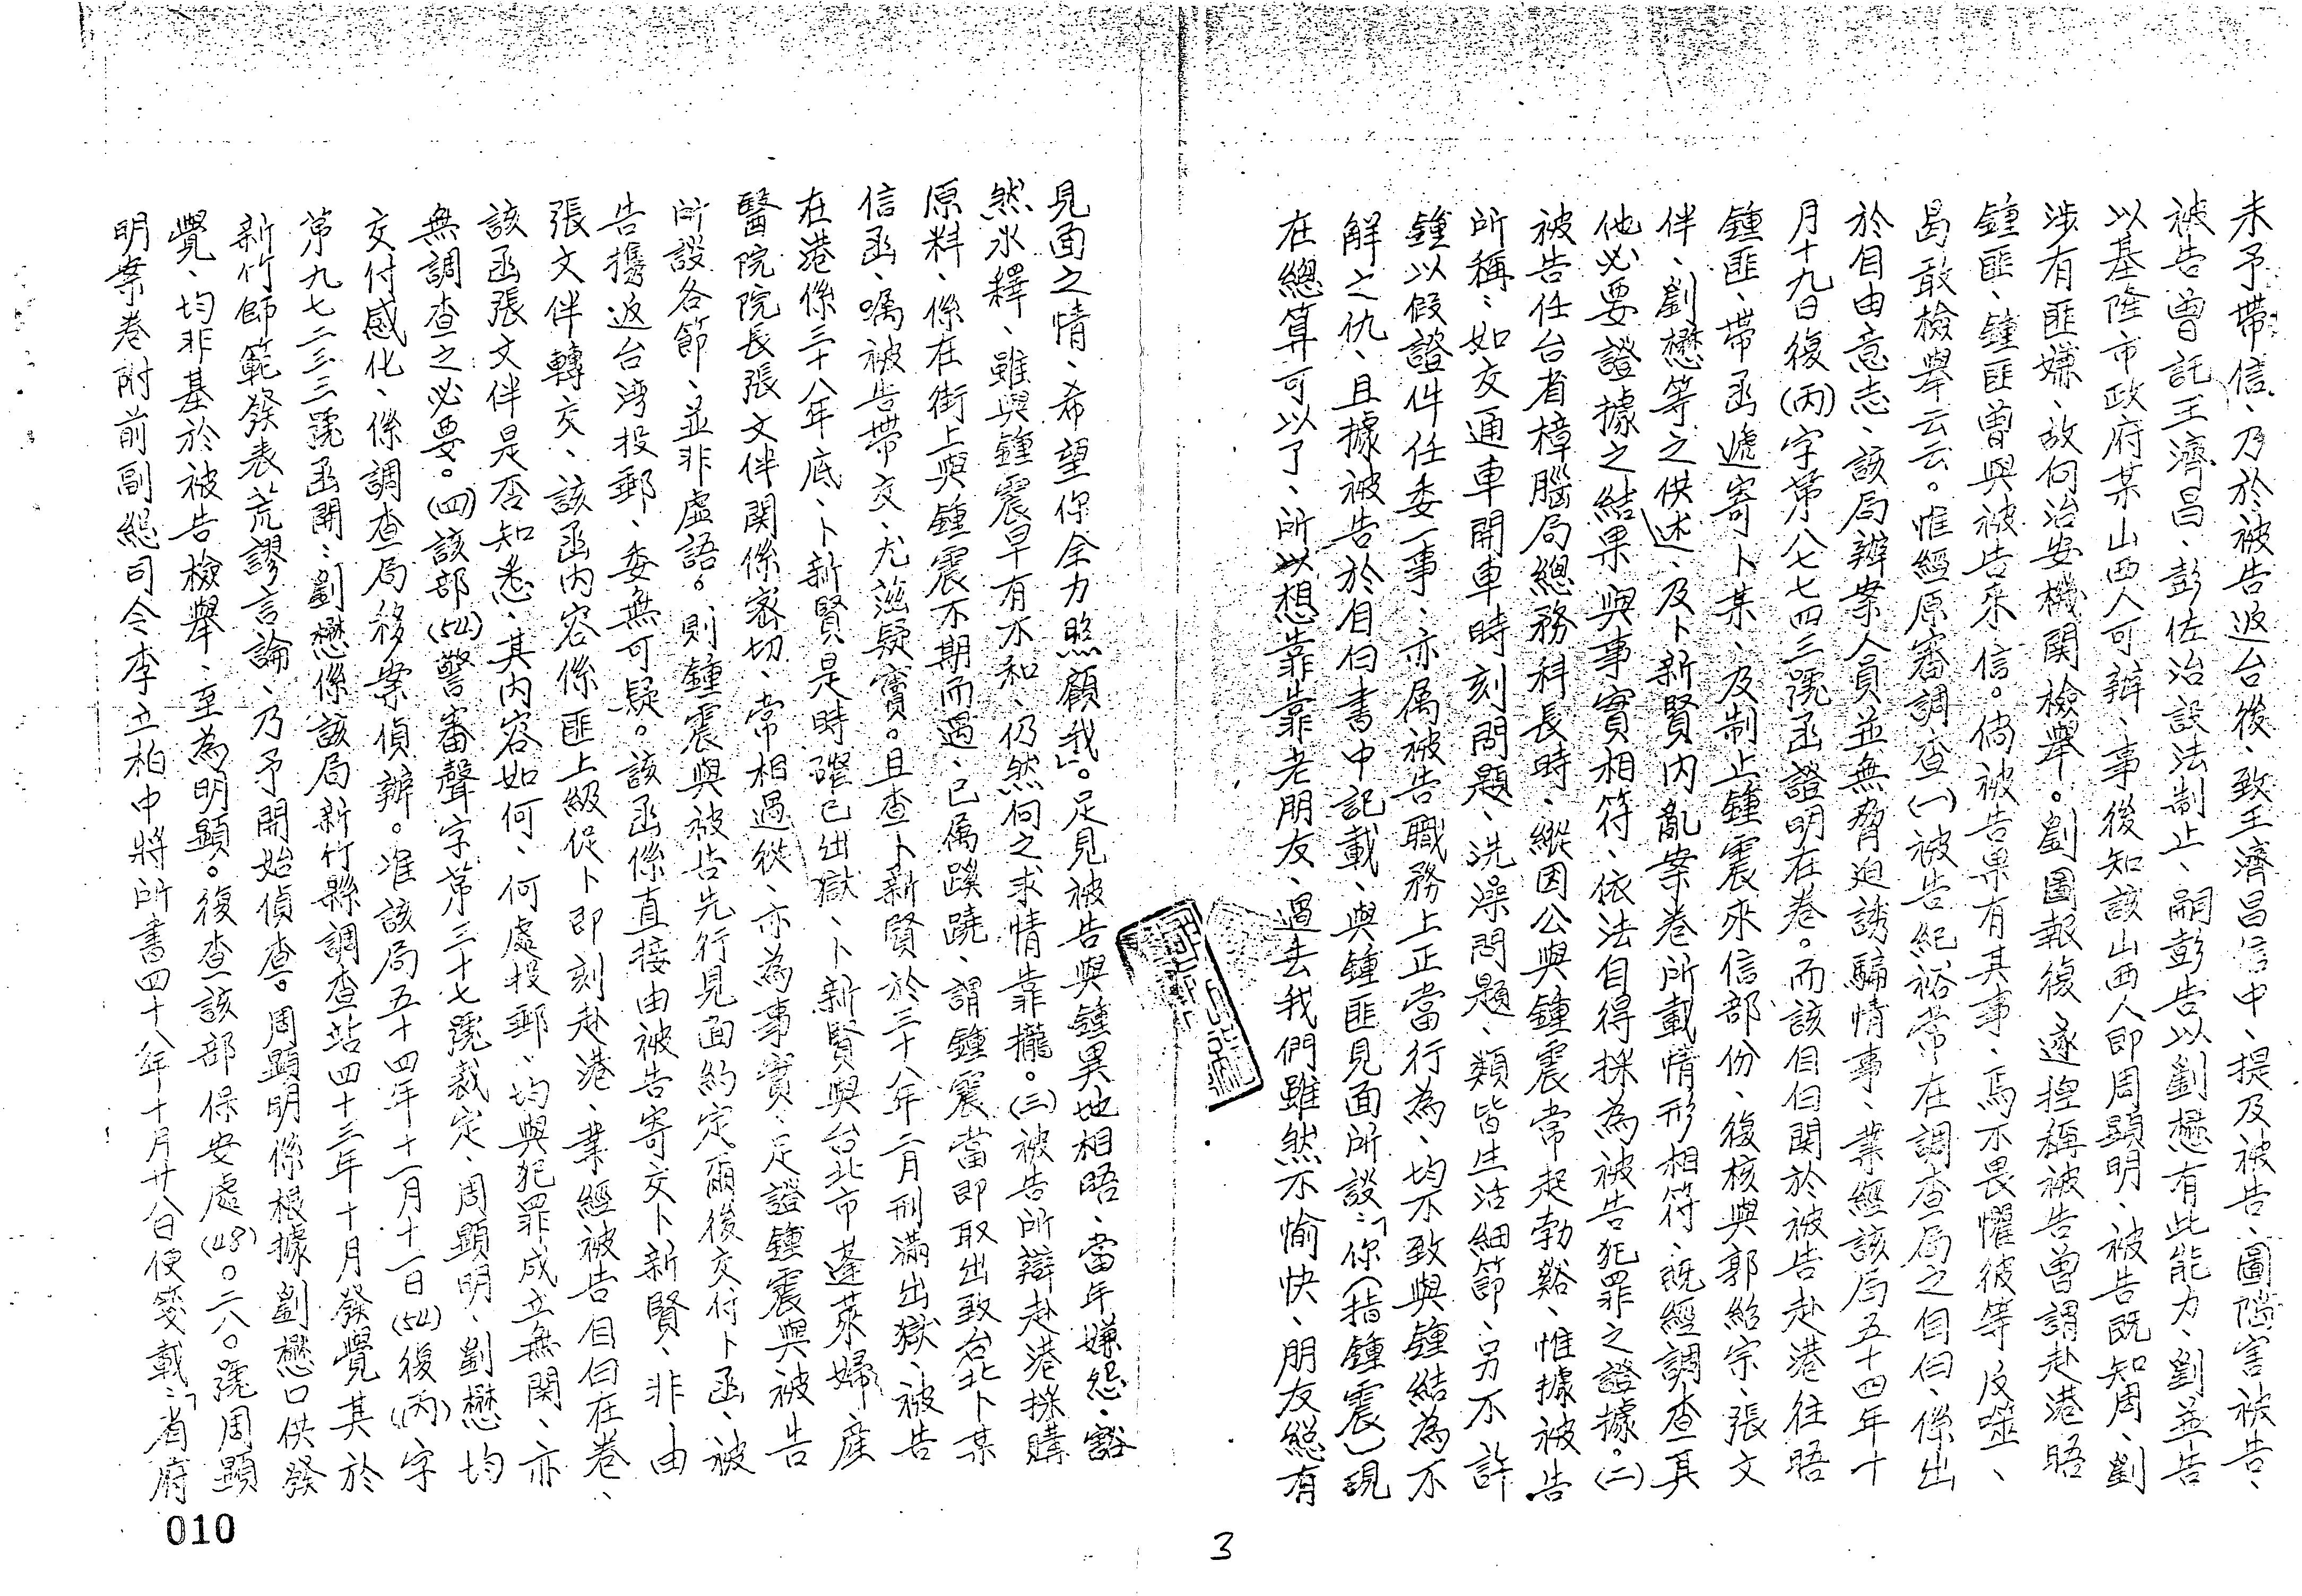 未予帶信、乃於被告返台後、致王濟昌信中、提及被告、圖陷害被告、
被告曾託王濟昌、彭佐治設法制止、嗣彭告以劉懋有此能力、劉並告
以基隆市政府某山西人可辦、事後知該山西人即周顯明、被告既知周、劉
涉有匪嫌、故向治安機関檢舉。劉圖報復、遂捏稱被告曾謂赴港晤
鍾匪、鍾匪曾與被告來信。倘被告果有其事、焉不畏懼彼等反噬、
曷敢檢舉云云。惟經原審調查(一)被告紀裕常在調查局之自白、係出
於自由意志、該局辦案人員並無脅迫誘騙情事、業經該局五十四年十
月十九日復(丙)字第八七七四三號函證明在卷。而該自白関於被告赴港往晤
鍾匪、帶函遞寄卜某、及制止鍾震來信部份、復核與郭紹宗、張文
伴、劉懋等之供述、及卜新賢內亂案卷所載情形相符、既經調查其
他必要證據之結果與事實相符、依法自得採為被告犯罪之證據。(二)
被告任台省樟腦局總務科長時、縱因公與鍾震常起勃谿、惟據被告
所稱：如交通車開車時刻問題、洗澡問題、類皆生活細節、另不許
鍾以假證件任委一事、亦属被告職務上正當行為、均不致與鍾結為不
解之仇、且據被告於自白書中記載、與鍾匪見面所談：「你(指鍾震)現
在總算可以了、所以想靠靠老朋友、過去我們雖然不愉快、朋友總有
見面之情、希望你全力照顧我」。足見被告與鍾異地相晤、當年嫌怨、豁
然氷釋、雖與鍾震早有不和、仍然向之求情靠攏。(三)被告所辯赴港採購
原料、係在街上與鍾震不期而遇、已属蹊蹺、謂鍾震當即取出致台北卜某
信函、嘱被告帶交、尤滋疑竇。且查卜新賢於三十八年二月刑滿出獄、被告
在港係三十八年底、卜新賢是時確已出獄、卜新賢與台北市蓬萊婦產
醫院院長張文伴関係密切、常相過從、亦為事實、足證鍾震與被告
所談各節、並非虛語。則鍾震與被告先行見面約定爾後交付卜函、被
告攜返台湾投郵、委無可疑。該函係直接由被告寄交卜新賢、非由
張文伴轉交、該函內容係匪上級促卜即刻赴港、業經被告自白在卷、
該函張文伴是否知悉、其內容如何、何處投郵、均與犯罪成立無関、亦
無調查之必要。(四)該部(54)警審聲字第三十七號裁定、周顯明、劉懋均
交付感化、係調查局移案偵辦。准該局五十四年十一月十一日(54)復(丙)字
第九七二三三號函開：劉懋係該局新竹縣調查站四十三年十月發覺其於
新竹師範發表荒謬言論、乃予開始偵查。周顯明係根據劉懋口供發
覺、均非基於被告檢舉、至為明顯。復查該部保安處(48)。二八。號周顯
明案卷附前副總司令李立柏中將所書四十八年十月廿八日便箋載：「省府
3
010